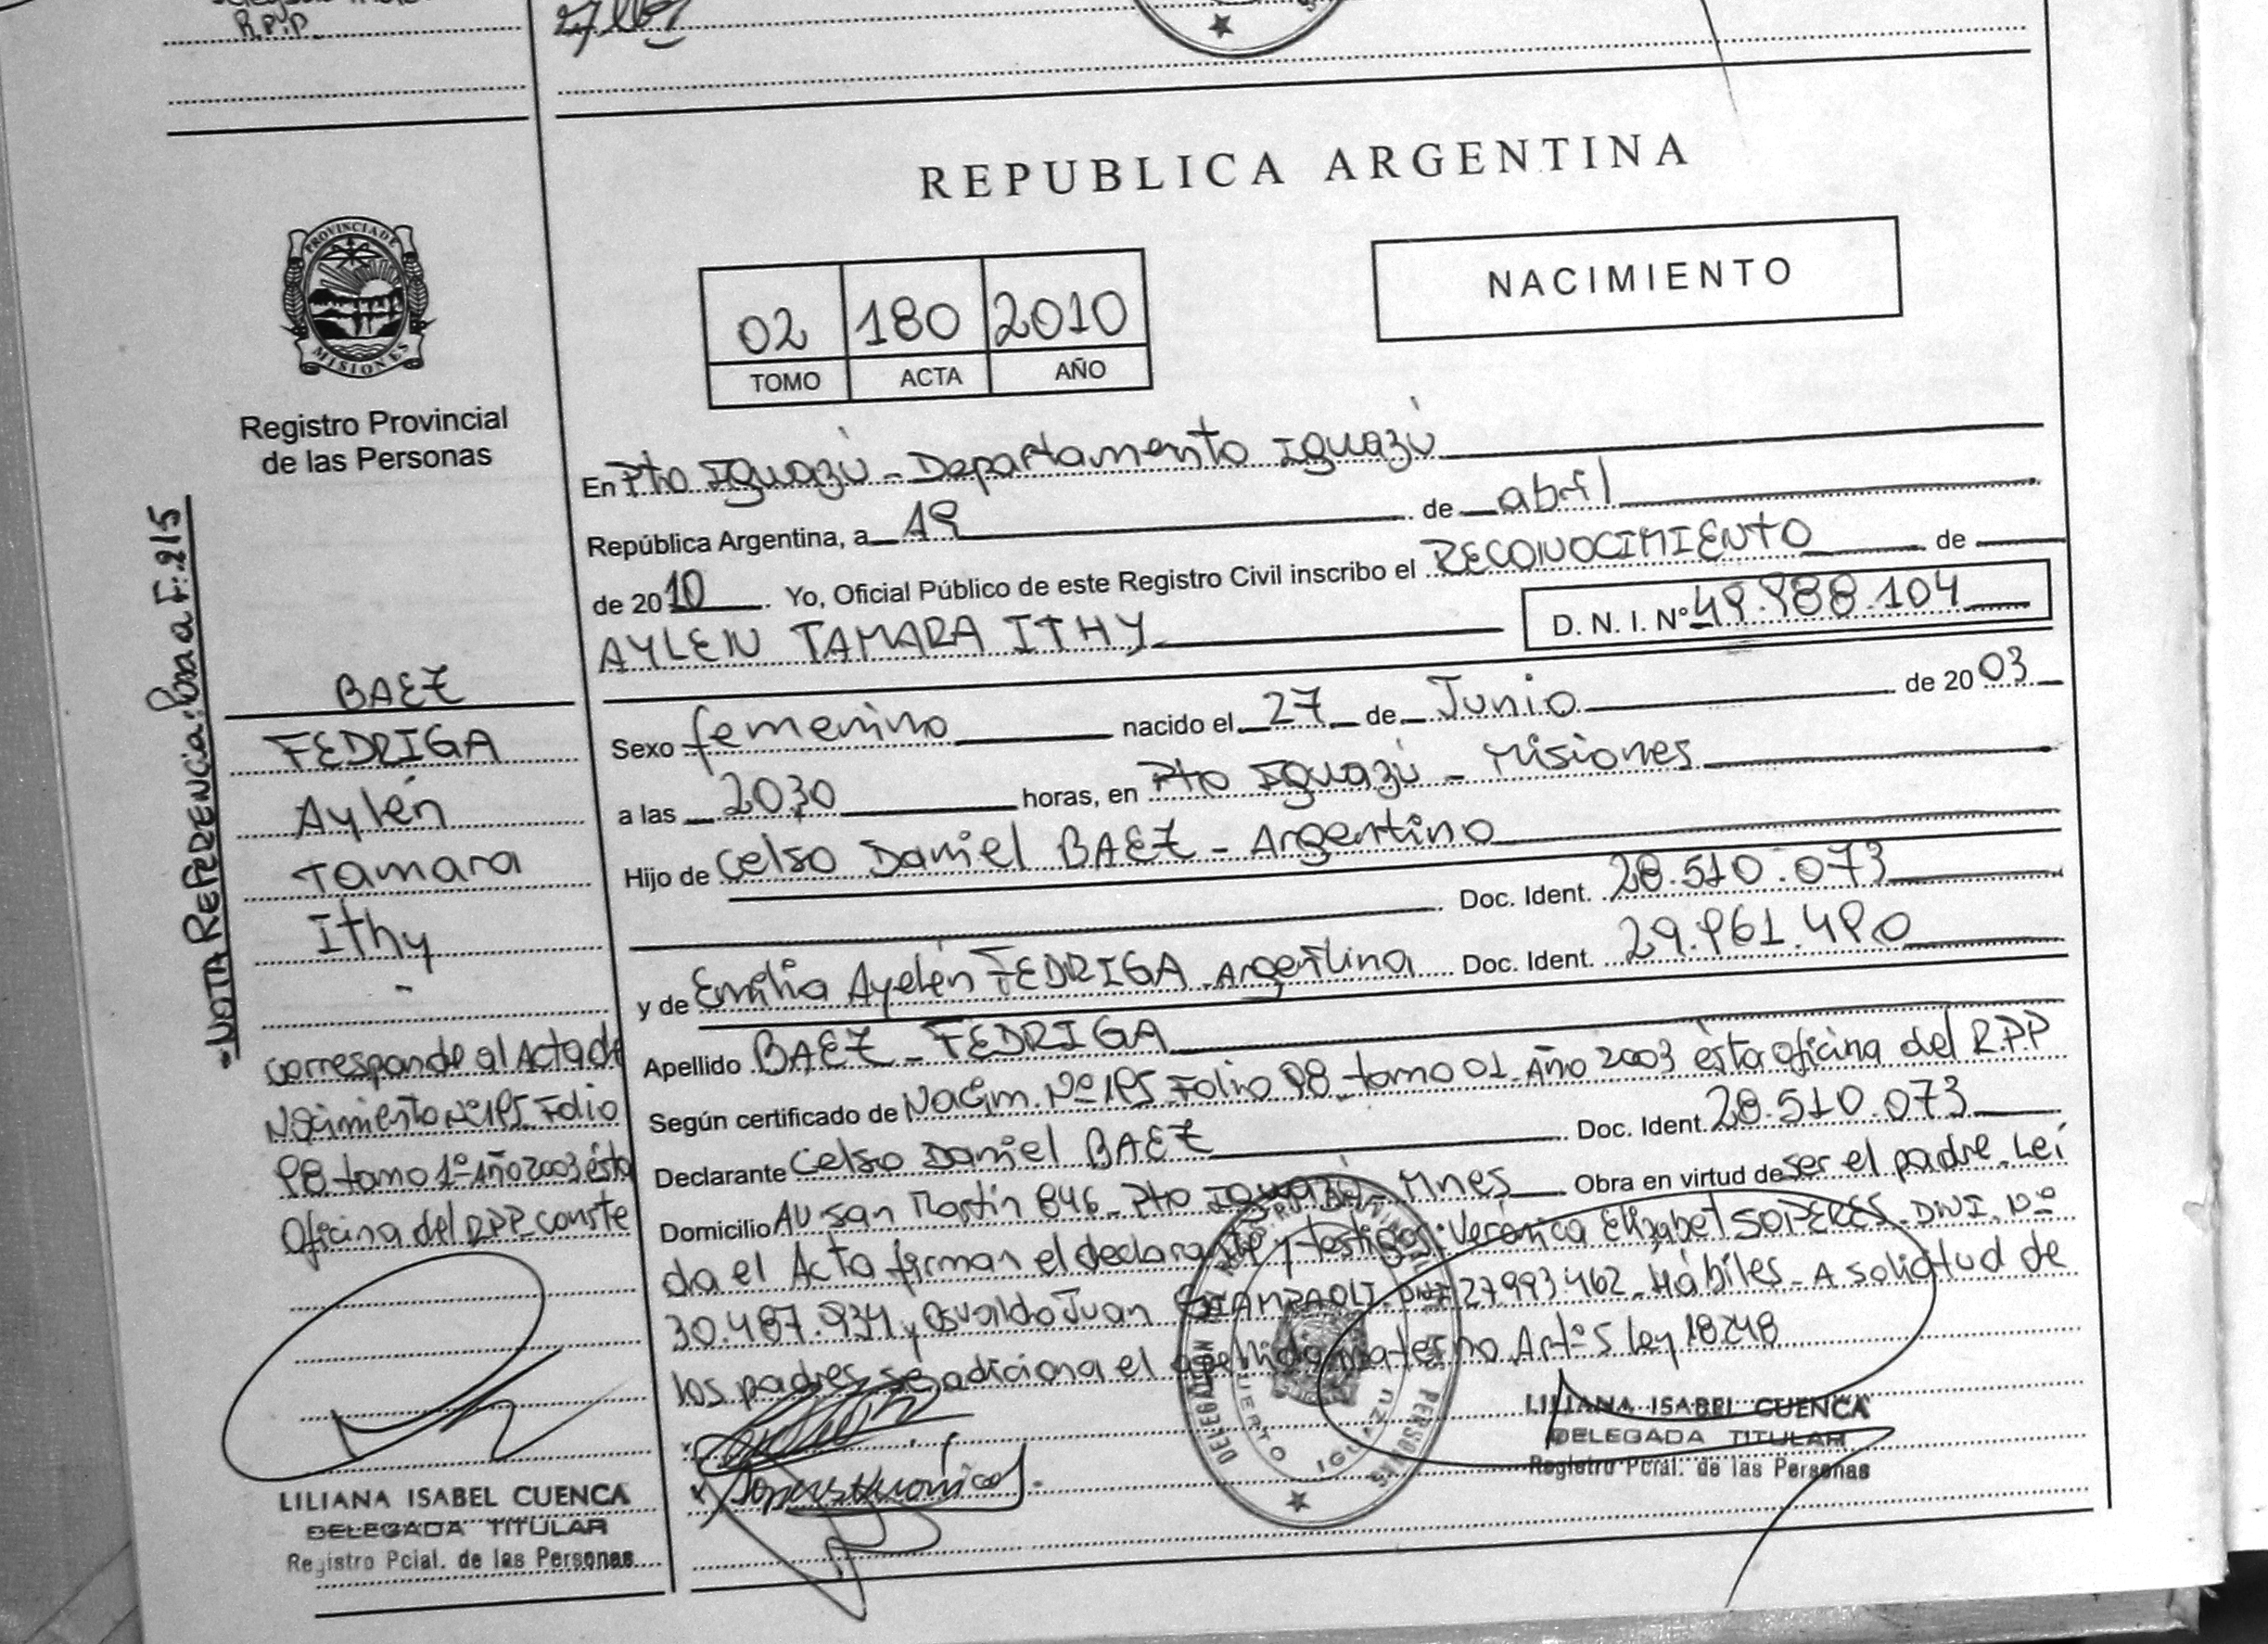 R.P.P.
REPUBLICA ARGENTINA
PROVINCIA DE
MISIONES
Registro Provincial
de las Personas
NACIMIENTO
02 180 2010
TOMO ACTA AÑO
En Pto Iguazú - Departamento Iguazú
República Argentina, a 19 de abril
de 2010. Yo, Oficial Público de este Registro Civil inscribo el RECONOCIMIENTO de
AYLEN TAMARA ITHY D. N. I. Nº 49.988.104
Sexo femenino nacido el 27 de Junio de 2003
a las 2030 horas, en Pto Iguazú - Misiones
Hijo de Celso Daniel BAEZ - Argentino
Doc. Ident. 28.510.073
y de Emilia Ayelén FEDRIGA - Argentina Doc. Ident. 29.961.490
Apellido BAEZ - FEDRIGA
Según certificado de Nacim. Nº 195 Folio 98 - tomo 01 - Año 2003 ésta oficina del R.P.P
Declarante Celso Daniel BAEZ Doc. Ident. 28.510.073
Domicilio AV San Martín 846 - Pto Iguazú - Mnes Obra en virtud de ser el padre - Leí
da el Acta firman el declarante y testigos: Verónica Elizabet SOPERES - DNI. Nº
30.487.934 y Osvaldo Juan DNI 27.993.462 - Hábiles - A solicitud de
los padres se adiciona el apellido materno Art-º 5 ley 18248
LILIANA ISABEL CUENCA
DELEGADA TITULAR
Registro Pcial. de las Personas
- NOTA REFERENCIA: Pasa a F: 215
BAEZ
FEDRIGA
Aylén
Tamara
Ithy
-
corresponde al Acta de
Nacimiento Nº 195 Folio
98 - tomo 1º - Año 2003 ésta
Oficina del R.P.P. conste
LILIANA ISABEL CUENCA
DELEGADA TITULAR
Registro Pcial. de las Personas
DELEGACION
PERSONAS
PUERTO IGUAZU